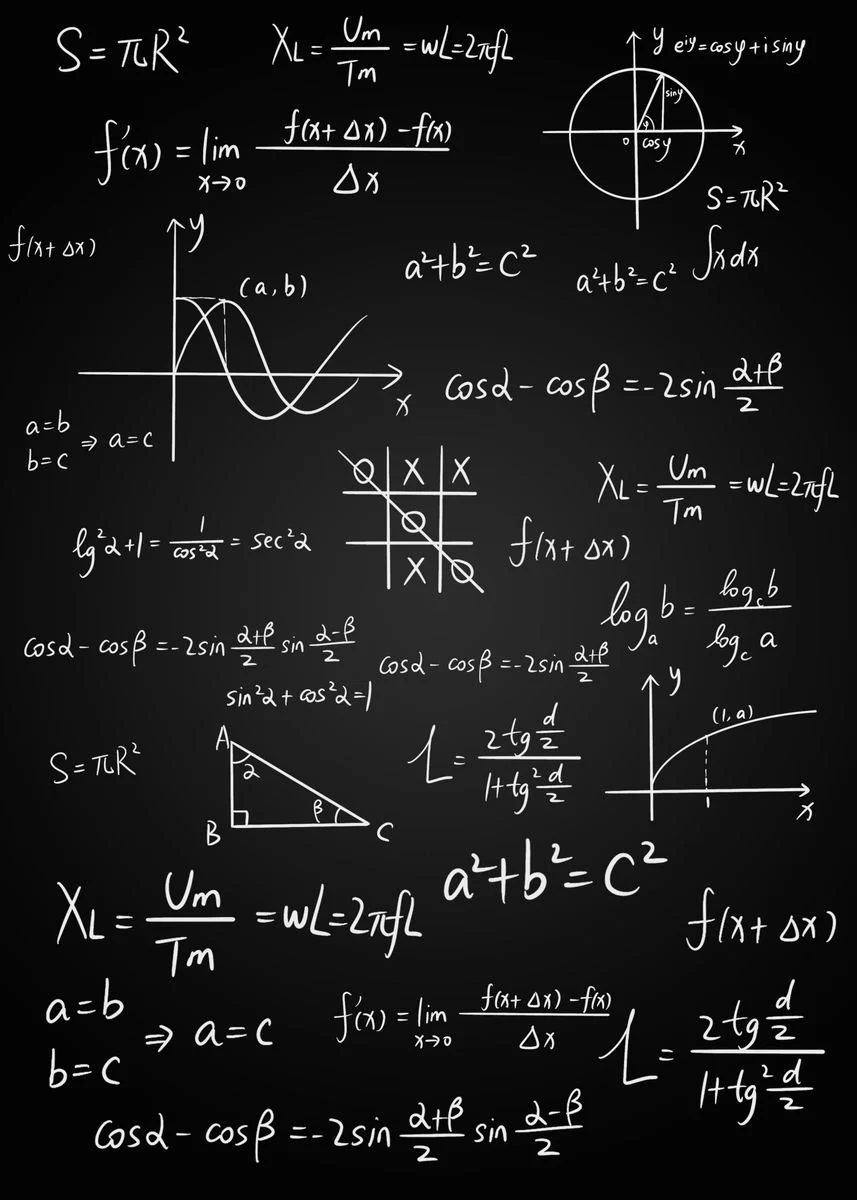 S=πR²
X_L = Um/Tm = wL=2πfL
y e^iy=cosy+i siny
siny
φ
o cosy x
f'(x) = lim x→0 f(x+Δx)-f(x)/Δx
S=πR²
f(x+Δx)
y
(a,b)
x
a²+b²=c²
a²+b²=c²
∫xdx
cosα-cosβ=-2sin α+β/2
a=b
b=c
⇒ a=c
O X X
O
X O
X_L = Um/Tm = wL=2πfL
lg²α+1= 1/cos²α = sec²α
f(x+Δx)
log_a b = log_c b/log_c a
cosα-cosβ=-2sin α+β/2 sin α-β/2
cosα-cosβ=-2sin α+β/2
sin²α+cos²α=1
y
(1,a)
1
x
S=πR²
A
α
β
B
C
L = 2tg d/2 / 1+tg² d/2
a²+b²=c²
X_L = Um/Tm = wL=2πfL
f(x+Δx)
a=b
b=c
⇒ a=c
f'(x) = lim x→0 f(x+Δx)-f(x)/Δx
L = 2tg d/2 / 1+tg² d/2
cosα-cosβ=-2sin α+β/2 sin α-β/2